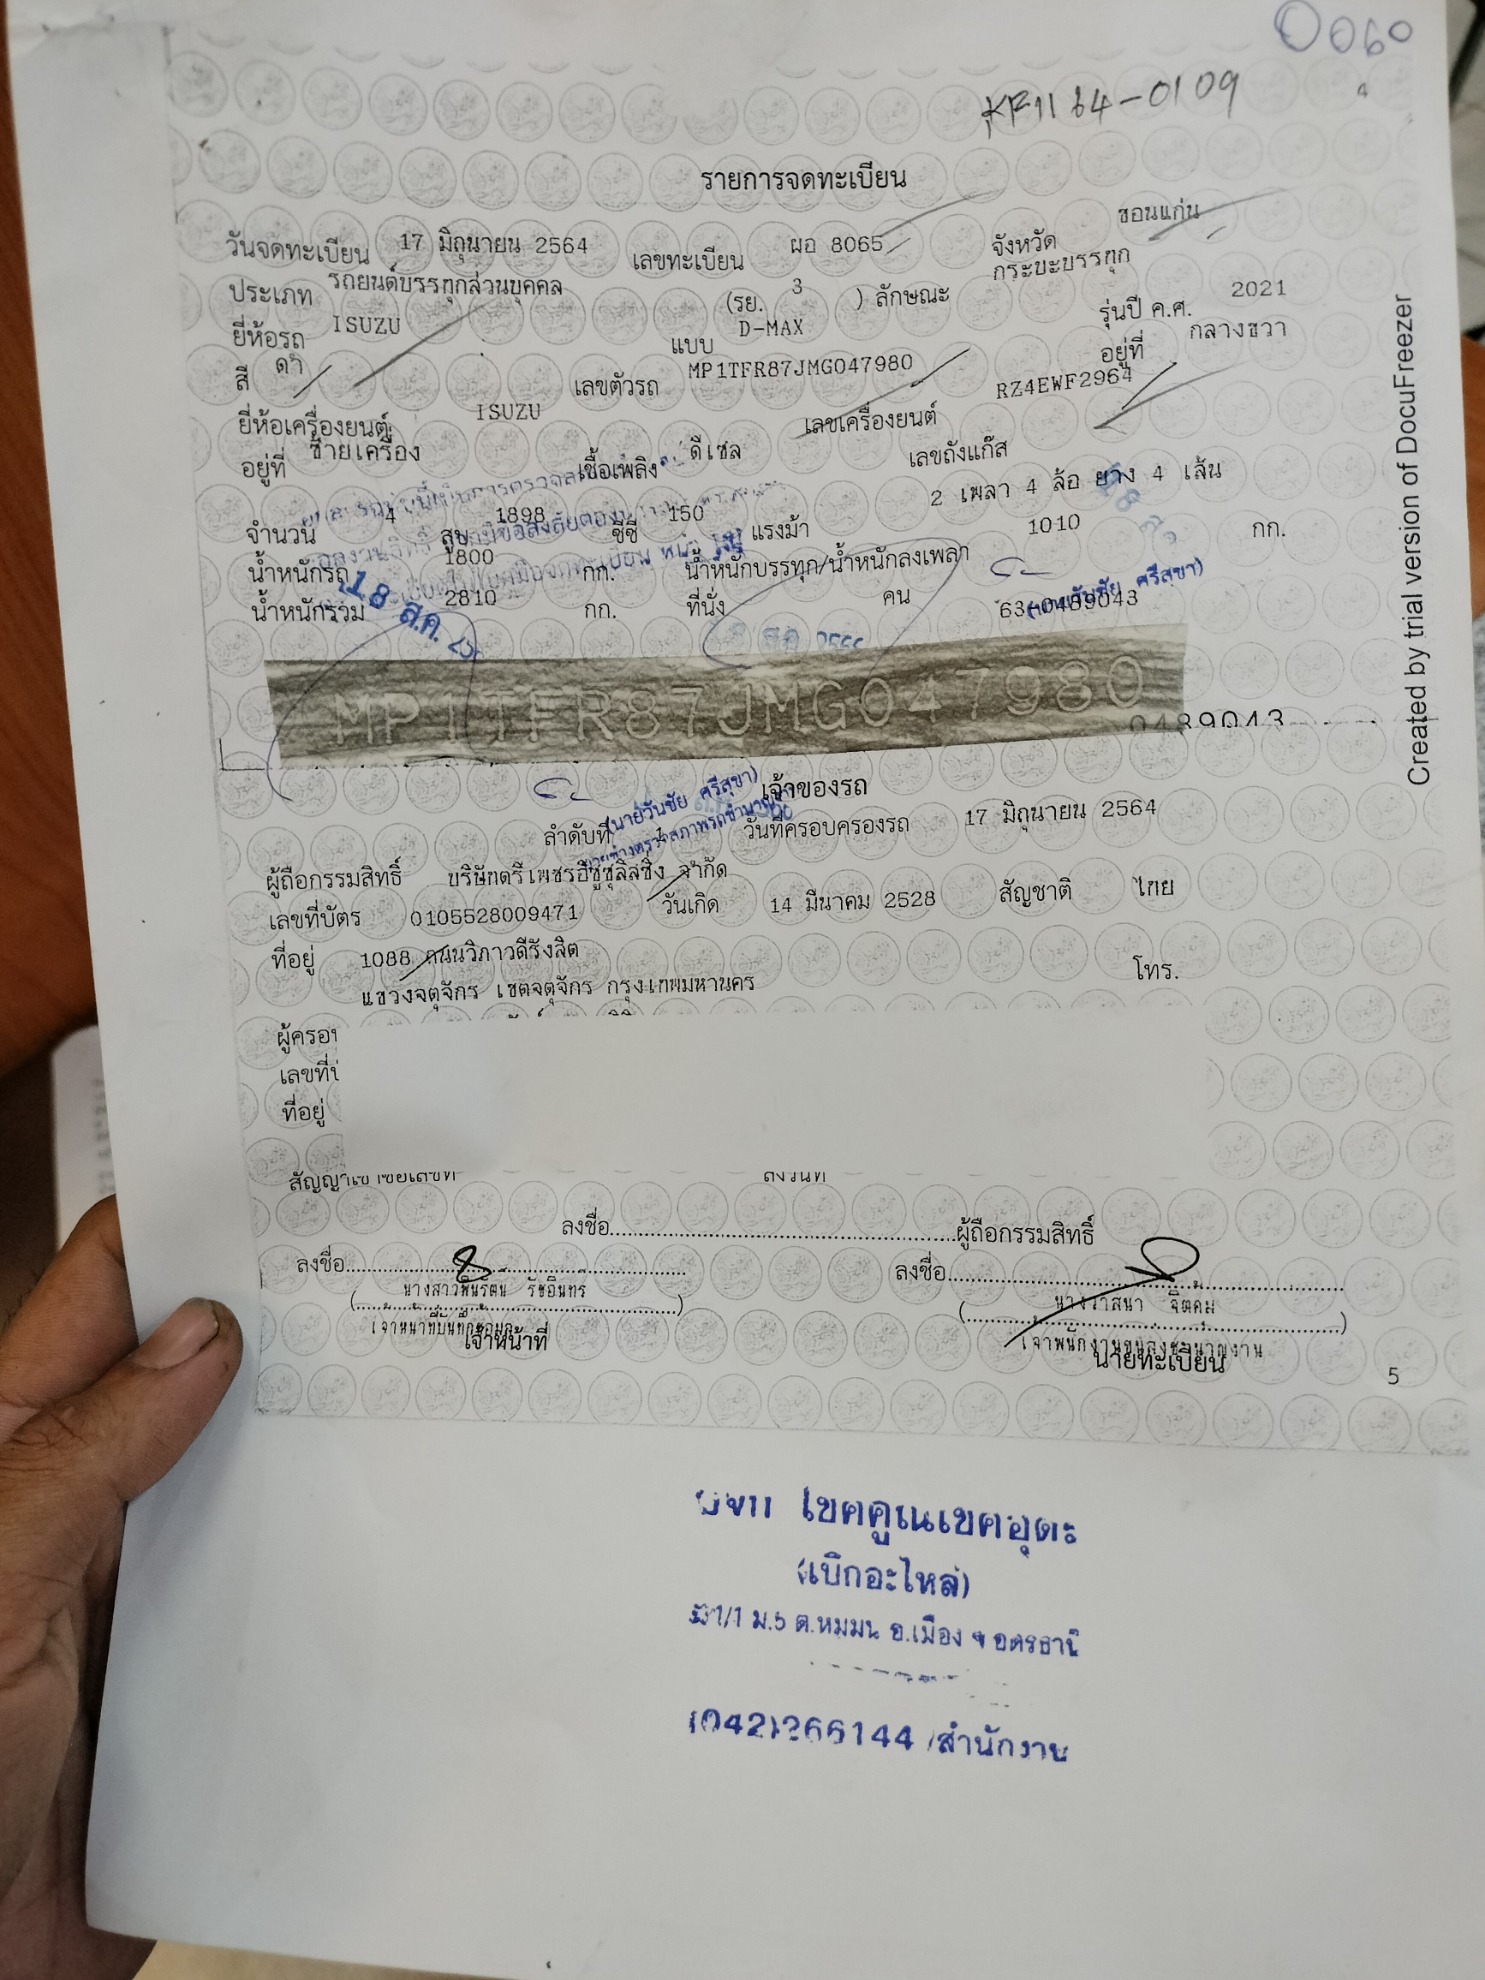 0060
KF1164-0109
4
รายการจดทะเบียน
วันจดทะเบียน 17 มิถุนายน 2564 เลขทะเบียน ผอ 8065 จังหวัด ขอนแก่น
ประเภท รถยนต์บรรทุกส่วนบุคคล (รย. 3 ) ลักษณะ กระบะบรรทุก
ยี่ห้อรถ ISUZU แบบ D-MAX รุ่นปี ค.ศ. 2021
สี ดำ เลขตัวรถ MP1TFR87JMG047980 อยู่ที่ กลางขวา
ยี่ห้อเครื่องยนต์ ISUZU เลขเครื่องยนต์ RZ4EWF2964
อยู่ที่ ซ้ายเครื่อง เชื้อเพลิง ดีเซล เลขถังแก๊ส
จำนวน 4 สูบ 1898 ซีซี 150 แรงม้า 2 เพลา 4 ล้อ ยาง 4 เส้น
น้ำหนักรถ 1800 กก. น้ำหนักบรรทุก/น้ำหนักลงเพลา 1010 กก.
น้ำหนักรวม 2810 กก. ที่นั่ง คน 63-0489043
18 ส.ค.
(นายวันชัย ศรีสุขา)
MP1TFR87JMG047980
0489043
เจ้าของรถ
(นายวันชัย ศรีสุขา)
ลำดับที่ 1 วันที่ครอบครองรถ 17 มิถุนายน 2564
ผู้ถือกรรมสิทธิ์ บริษัทตรีเพชรอีซูซุลิสซิ่ง จำกัด
เลขที่บัตร 0105528009471 วันเกิด 14 มีนาคม 2528 สัญชาติ ไทย
ที่อยู่ 1088 ถนนวิภาวดีรังสิต
แขวงจตุจักร เขตจตุจักร กรุงเทพมหานคร โทร.
ที่อยู่
ลงชื่อ ผู้ถือกรรมสิทธิ์
ลงชื่อ ลงชื่อ
(นางสาวพันรัตน์ รัชอินทร์) (นางวาสนา จิตคุม)
เจ้าหน้าที่บันทึกข้อมูล เจ้าพนักงานขนส่งชำนาญงาน
เจ้าหน้าที่ นายทะเบียน
5
Created by trial version of DocuFreezer
(เบิกอะไหล่)
(042)266144 /สำนักงาน